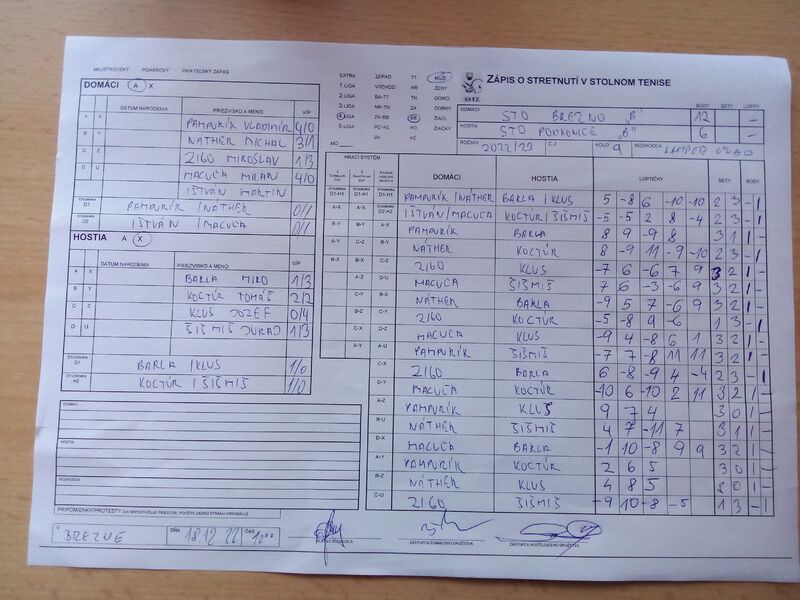 MAJSTROVSKÝ POHÁROVÝ PRIATEĽSKÝ ZÁPAS
DOMÁCI A X
DÁTUM NARODENIA PRIEZVISKO A MENO V/P
A X PAMPURÍK VLADIMÍR 4/0
B Y NÁTHER MICHAL 3/1
C Z ZIGO MIROSLAV 1/3
D U MACUĽA MILAN 4/0
IŠTVÁN MARTIN
ŠTVORHRA D1 PAMPURÍK / NÁTHER 0/1
ŠTVORHRA D2 IŠTVÁN / MACUĽA 0/1
HOSTIA A X
DÁTUM NARODENIA PRIEZVISKO A MENO V/P
A X BARLA MIRO 1/3
B Y KOCTÚR TOMÁŠ 2/2
C Z KLUS JOZEF 0/4
D U ŠIŠMIŠ JURAJ 1/3
ŠTVORHRA D1 BARLA / KLUS 1/0
ŠTVORHRA H2 KOCTÚR / ŠIŠMIŠ 1/0
DOMÁCI
HOSTIA
ROZHODCA
PRIPOMIENKY/PROTESTY
BREZNE DŇA 18.12.22 ČAS 10°°
EXTRA ZÁPAD TT MUŽI
1 LIGA VÝCHOD NR ŽENY
2 LIGA BA-TT TN DORCI
3 LIGA NR-TN ZA DORKY
4 LIGA ZA-BB BB ŽIACI
5 LIGA PO-KE PO ŽIAČKY
BA KE
MO
SSTZ
ZÁPIS O STRETNUTÍ V STOLNOM TENISE
BODY SETY LOPTY
DOMÁCI STO BREZNO "B" 12 –
HOSTIA STO PODKONICE "B" 6 –
ROČNÍK 2022/23 Č.Z. KOLO 9 ROZHODCA
HRACÍ SYSTÉM DOMÁCI HOSTIA LOPTIČKY SETY BODY
PAMPURÍK / NÁTHER BARLA / KLUS 5 -8 6 -10 -10 2 3 – 1
IŠTVÁN / MACUĽA KOCTÚR / ŠIŠMIŠ -5 -5 2 8 -4 2 3 – 1
PAMPURÍK BARLA 8 9 -9 8 3 1 1 –
NÁTHER KOCTÚR 8 -9 11 -9 -10 2 3 – 1
ZIGO KLUS -7 6 -6 7 9 3 2 1 –
MACUĽA ŠIŠMIŠ 7 6 -3 -6 9 3 2 1 –
NÁTHER BARLA -9 5 7 -6 9 3 2 1 –
ZIGO KOCTÚR -5 -8 9 -6 1 3 – 1
MACUĽA KLUS -9 4 -8 6 1 3 2 1 –
PAMPURÍK ŠIŠMIŠ -7 7 -8 11 11 3 2 1 –
ZIGO BARLA 6 -8 -9 4 -4 2 3 – 1
MACUĽA KOCTÚR -10 6 -10 2 11 3 2 1 –
PAMPURÍK KLUS 9 7 4 3 0 1 –
NÁTHER ŠIŠMIŠ 4 7 -11 7 3 1 1 –
MACUĽA BARLA -1 10 -8 9 9 3 2 1 –
PAMPURÍK KOCTÚR 2 6 5 3 0 1 –
NÁTHER KLUS 4 8 5 3 0 1 –
ZIGO ŠIŠMIŠ -9 10 -8 -5 1 3 – 1
ZÁSTUPCA DOMÁCEHO DRUŽSTVA ZÁSTUPCA HOSŤUJÚCEHO DRUŽSTVA